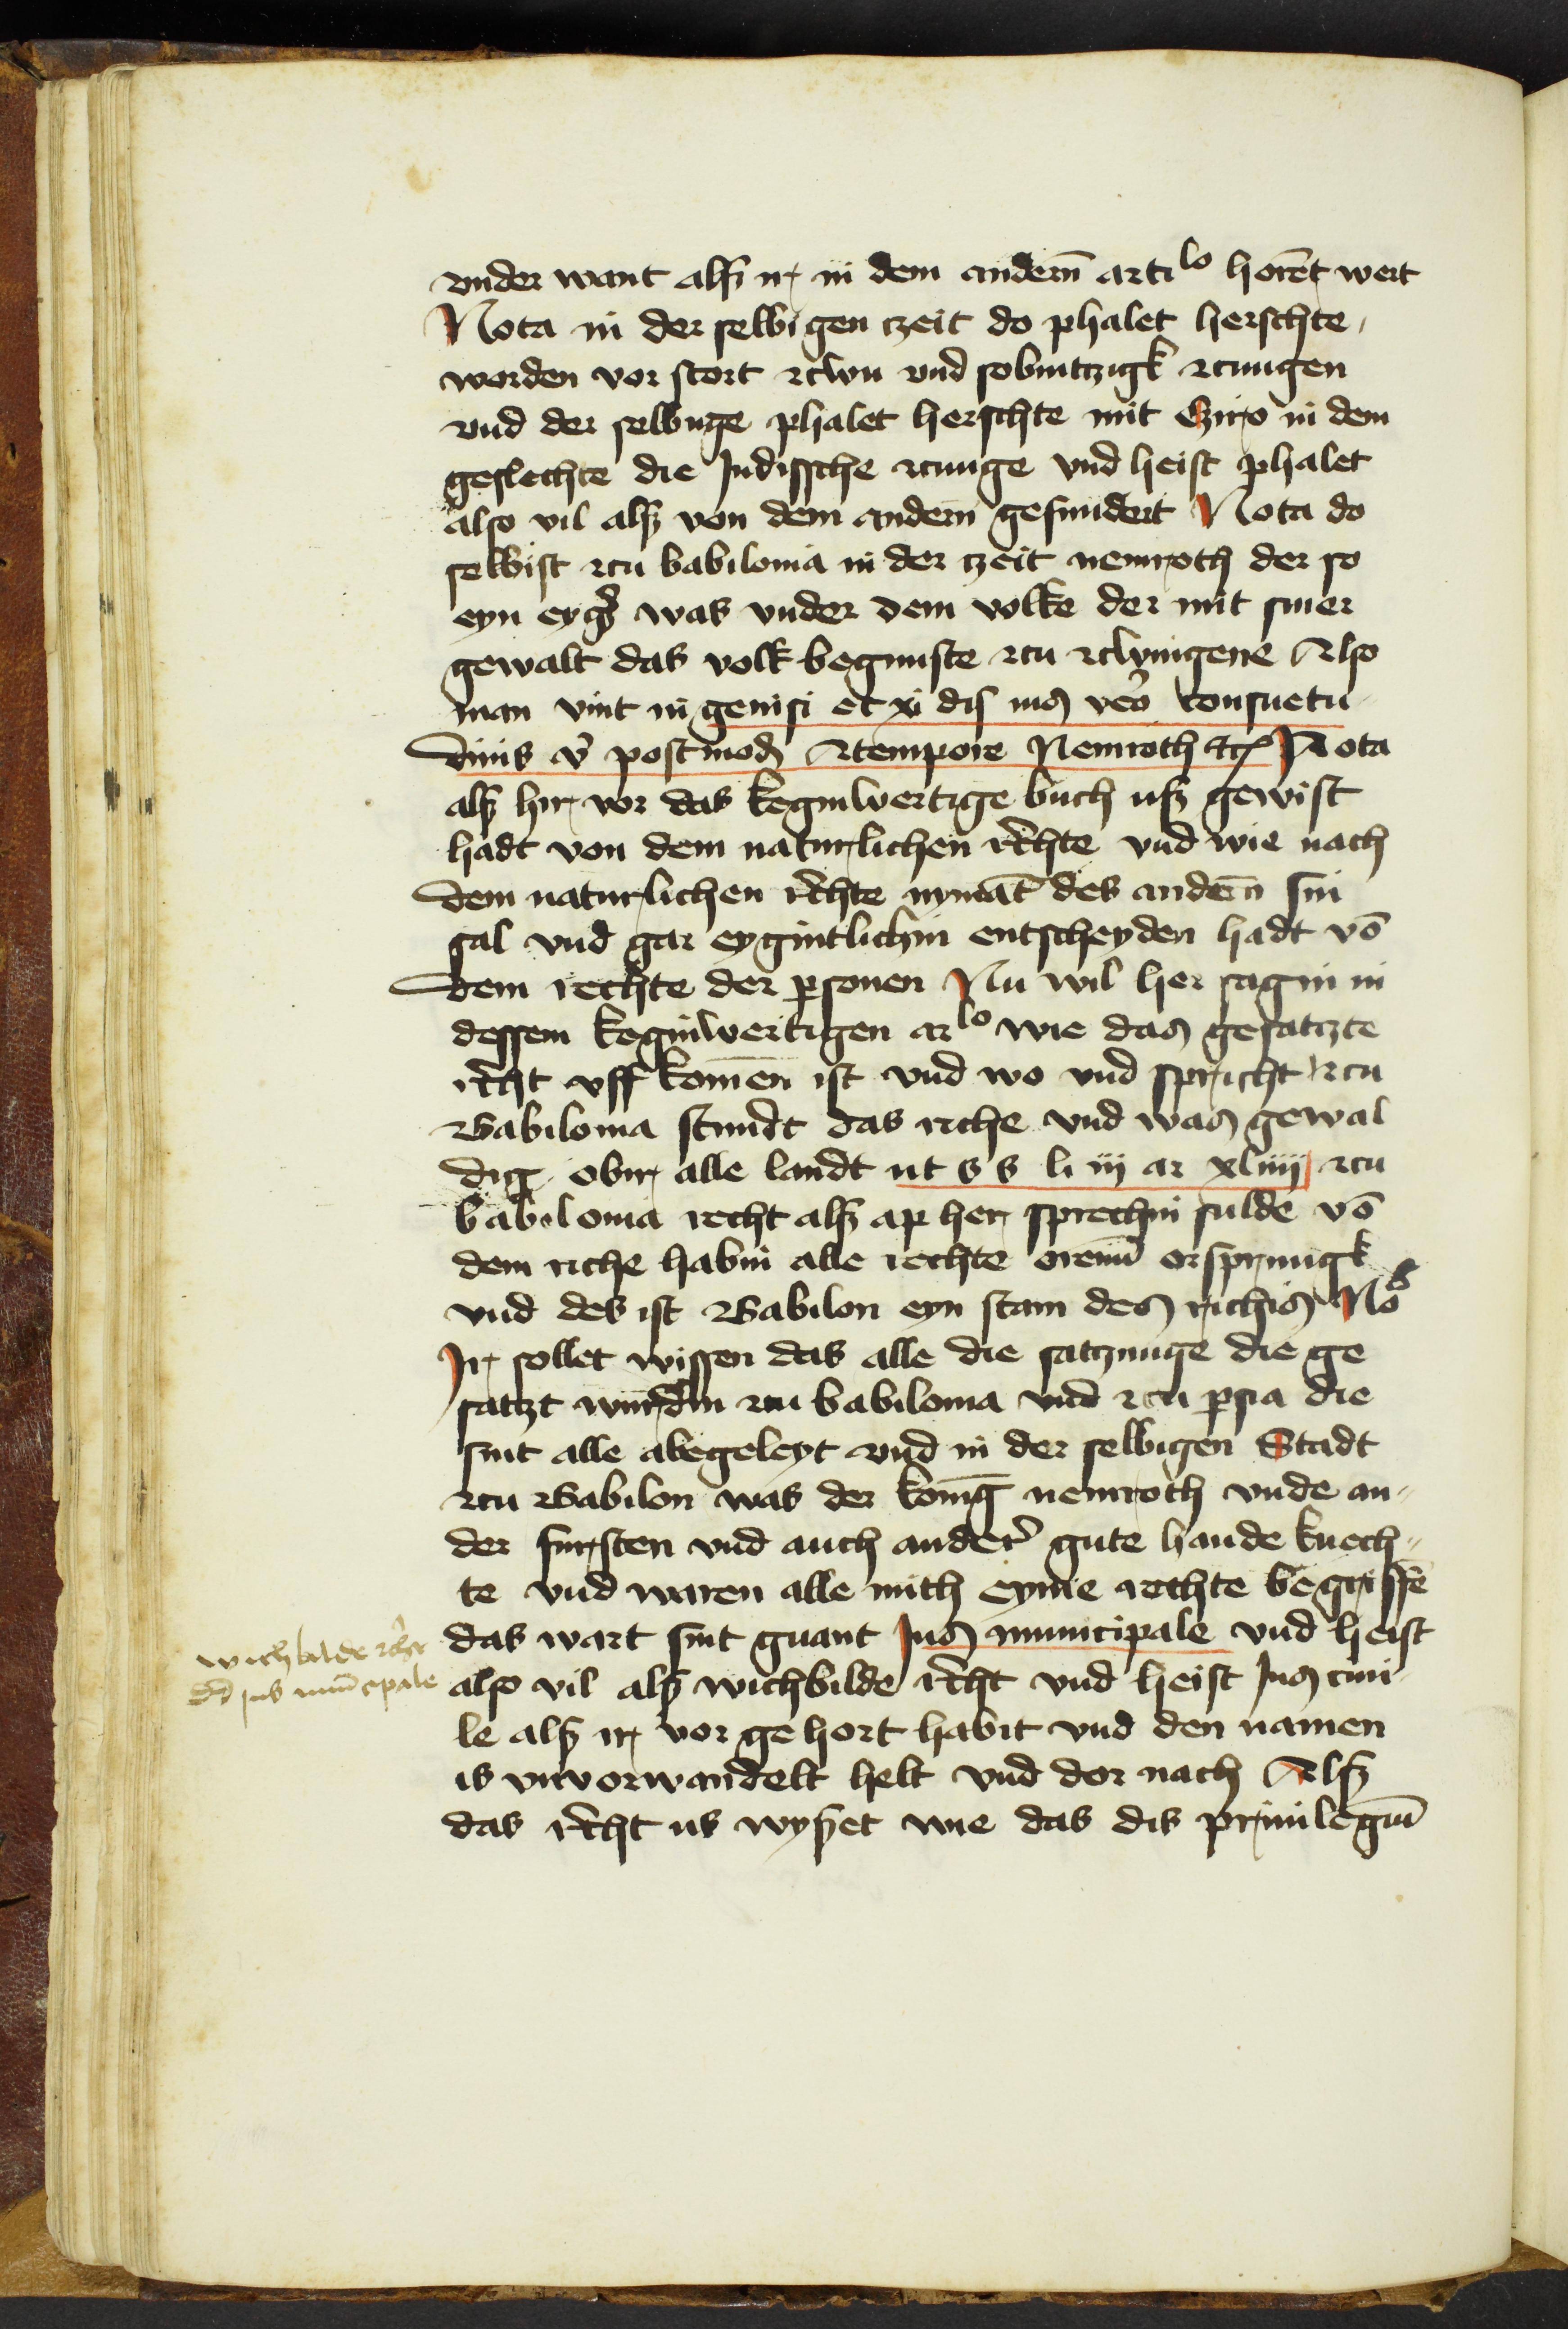 vnder want alß ir in dem andern̄ arti^lo horēt wert
Nota in der selbigen czeit do phalet herschte
worden vor stort zcwu vnd sobintczigk zcungen
vnd der selbige phalet herschte mit Eziro in dem
geslechte die Judissche zcunge vnd heist phalet
also vil alß von dem andern̄ gesundert Nota do
selbist zcu babilonia in der czeit nemroth der so
eyn was vnder dem volke der mit siner
gewalt das volk begunste zcu zcwingene Also
man vint in genisi et xi dis ius vero consuetu
dinis postmod tempore Nemroth etc Nota
alß hir vor das keginwertige buch uß gewist
hadt von dem naturlichen rc̄hte vnd wie nach
dem naturlichen rc̄hte nymāt des andern̄ sin
sal vnd gar eygintlichin entscheyden hadt vō
dem rechte der personen Nu wil her sagin in
dessem keginwertigen ar^lo wie das gesatczte
rc̄ht vff komen̄ ist vnd wo vnd spricht zcu
Babilonia stundt das riche vnd was gewal
dig obir alle landt ut s s li iij ar xliiij zcu
babilonia recht alß ap her sprechin sulde vō
dem riche habin alle rechte oren̄ orsprungk
vnd des ist Babilon eyn stam des richis No
Ir sollet wissen das alle die satczunge die ge
satczt wurdin zcu babilonia vnd zcu psia die
sint alle abegeleyt vnd in der selbigen Stadt
zcu Babilon was der koniḡ nemroth vnde an
der fursten vnd auch ander gute hande knech
te vnd waren alle mith eyme rechte begriffē
das wart sint gnant Jus municipale vnd heist
also vil alß wichbilde rc̄ht vnd heist Jus ciui
le alß ir vor gehort habit vnd den namen
is vnvorwandelt helt vnd dor nach Alß
das rc̄ht us wyset wie das dis priuilegiū
wichbilde rc̄ht
ius mūcipale